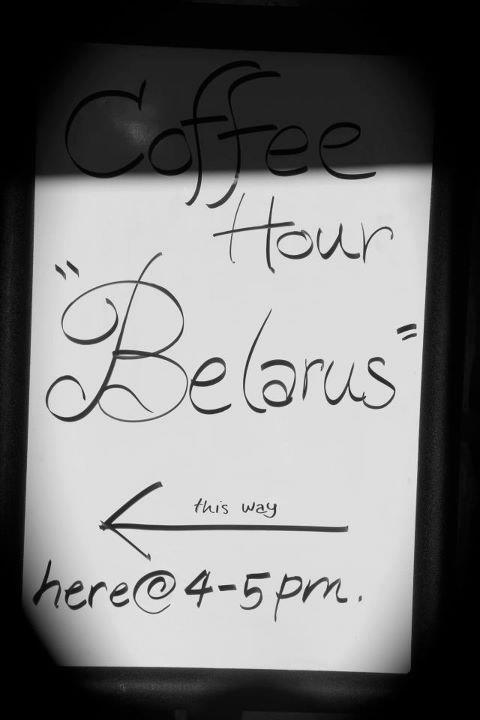 Coffee
Hour
"Belarus"
this way
here@4-5pm.